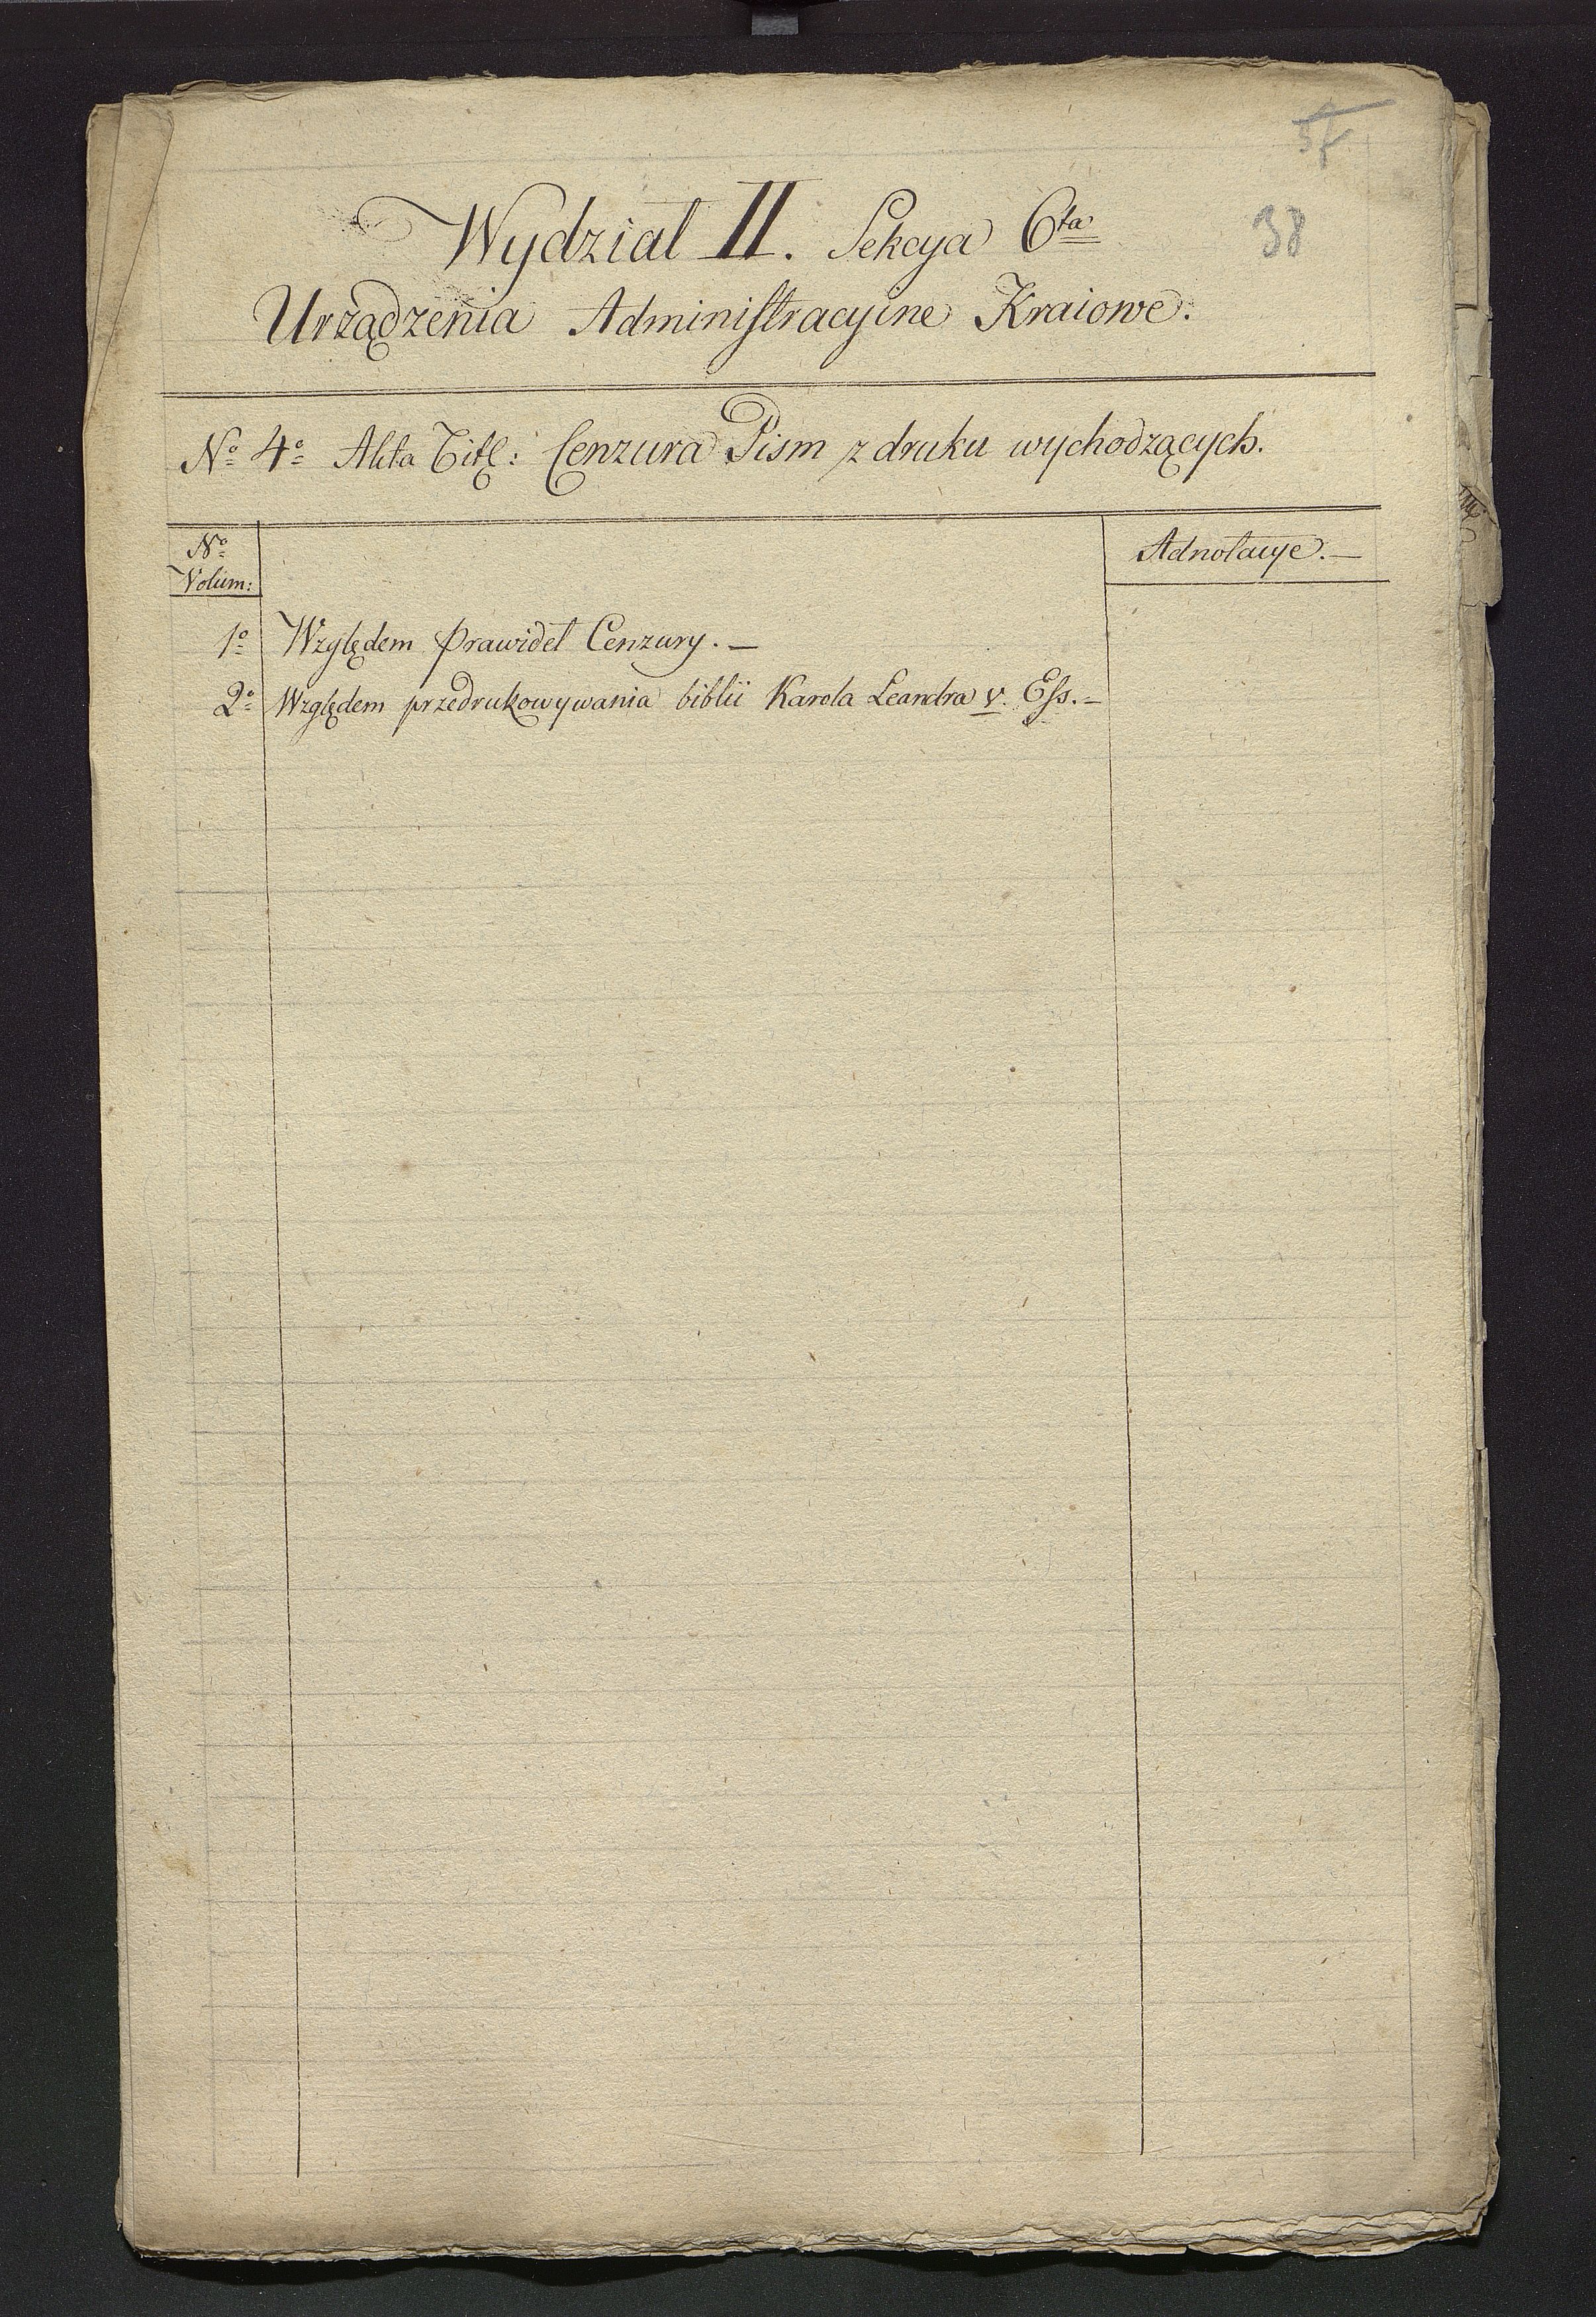 38
Wydział II. Sekcya 6ta
Urządzenia Administracyine Kraiowe.
No 4o Akta Titl: Cenzura Pism z druku wychodzących.
No Volum:
Adnotacye.—
1o Względem Prawideł Cenzury.—
2o Względem przedrukowywania biblii Karola Leandra v. Ess.—